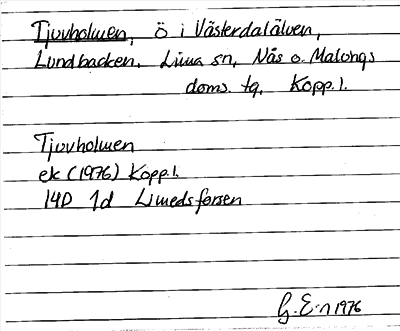 Tjuvholmen, ö i Västerdalälven,
Lundbacken, Lima sn, Nås o. Malungs
doms. tg, Kopp.l.
Tjuvholmen
ek (1976) Kopp.l.
14D 1d Limedsforsen
G. E-n 1976